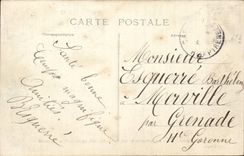 CARTE POSTALE
Correspondance
Santé bonne
temps magnifique
Amitiés
Monsieur
Esquerré Barthélemy
à Merville
par Grenade
Hte Garonne